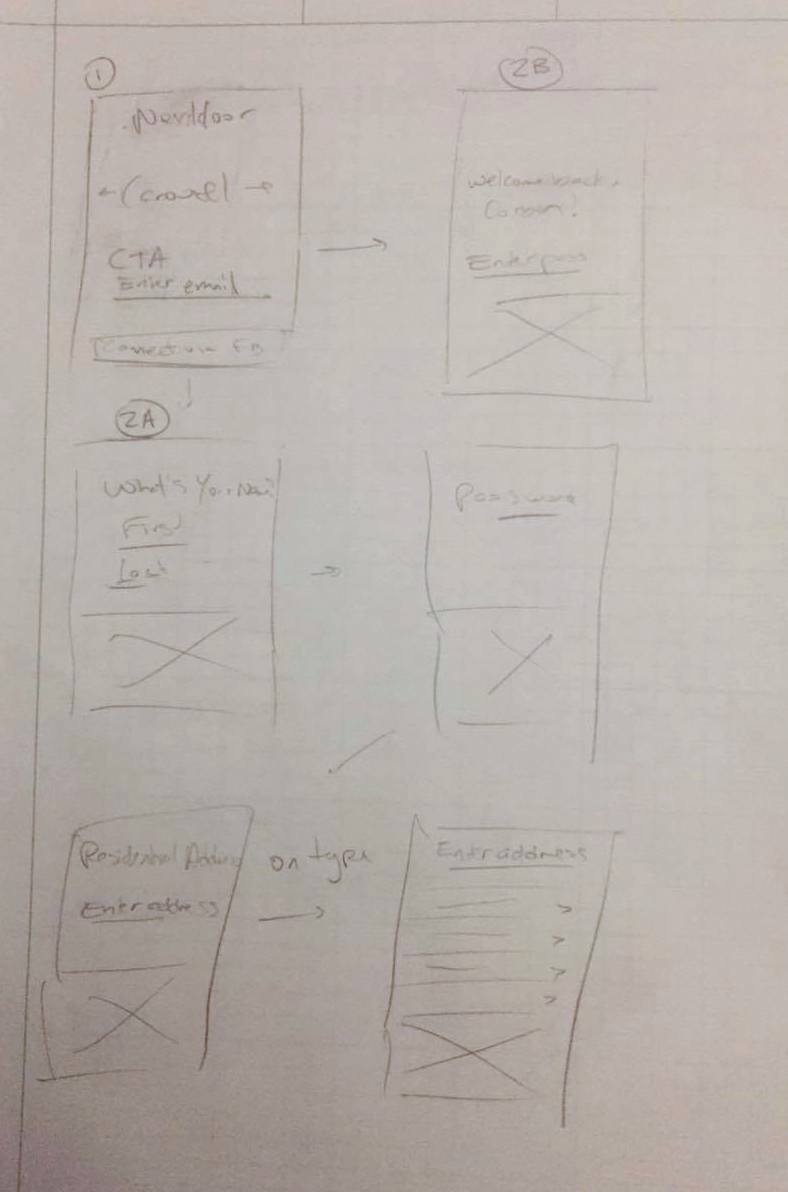 1
Nextdoor
(carousel)
CTA
Enter email
Connect via FB
2B
Welcome back,
Enter pass
2A
What's Your Name?
First
Last
Password
Residential Address
Enter address
on type
Enter address